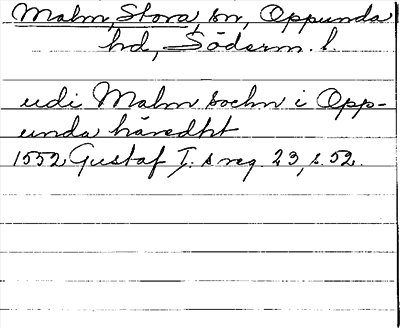 Malm, Stora, sn, Oppunda
hd, Söderm. l.
udi Malm sochn i Opp-
unda häredht
1552 Gustaf I:s reg. 23, s. 52.